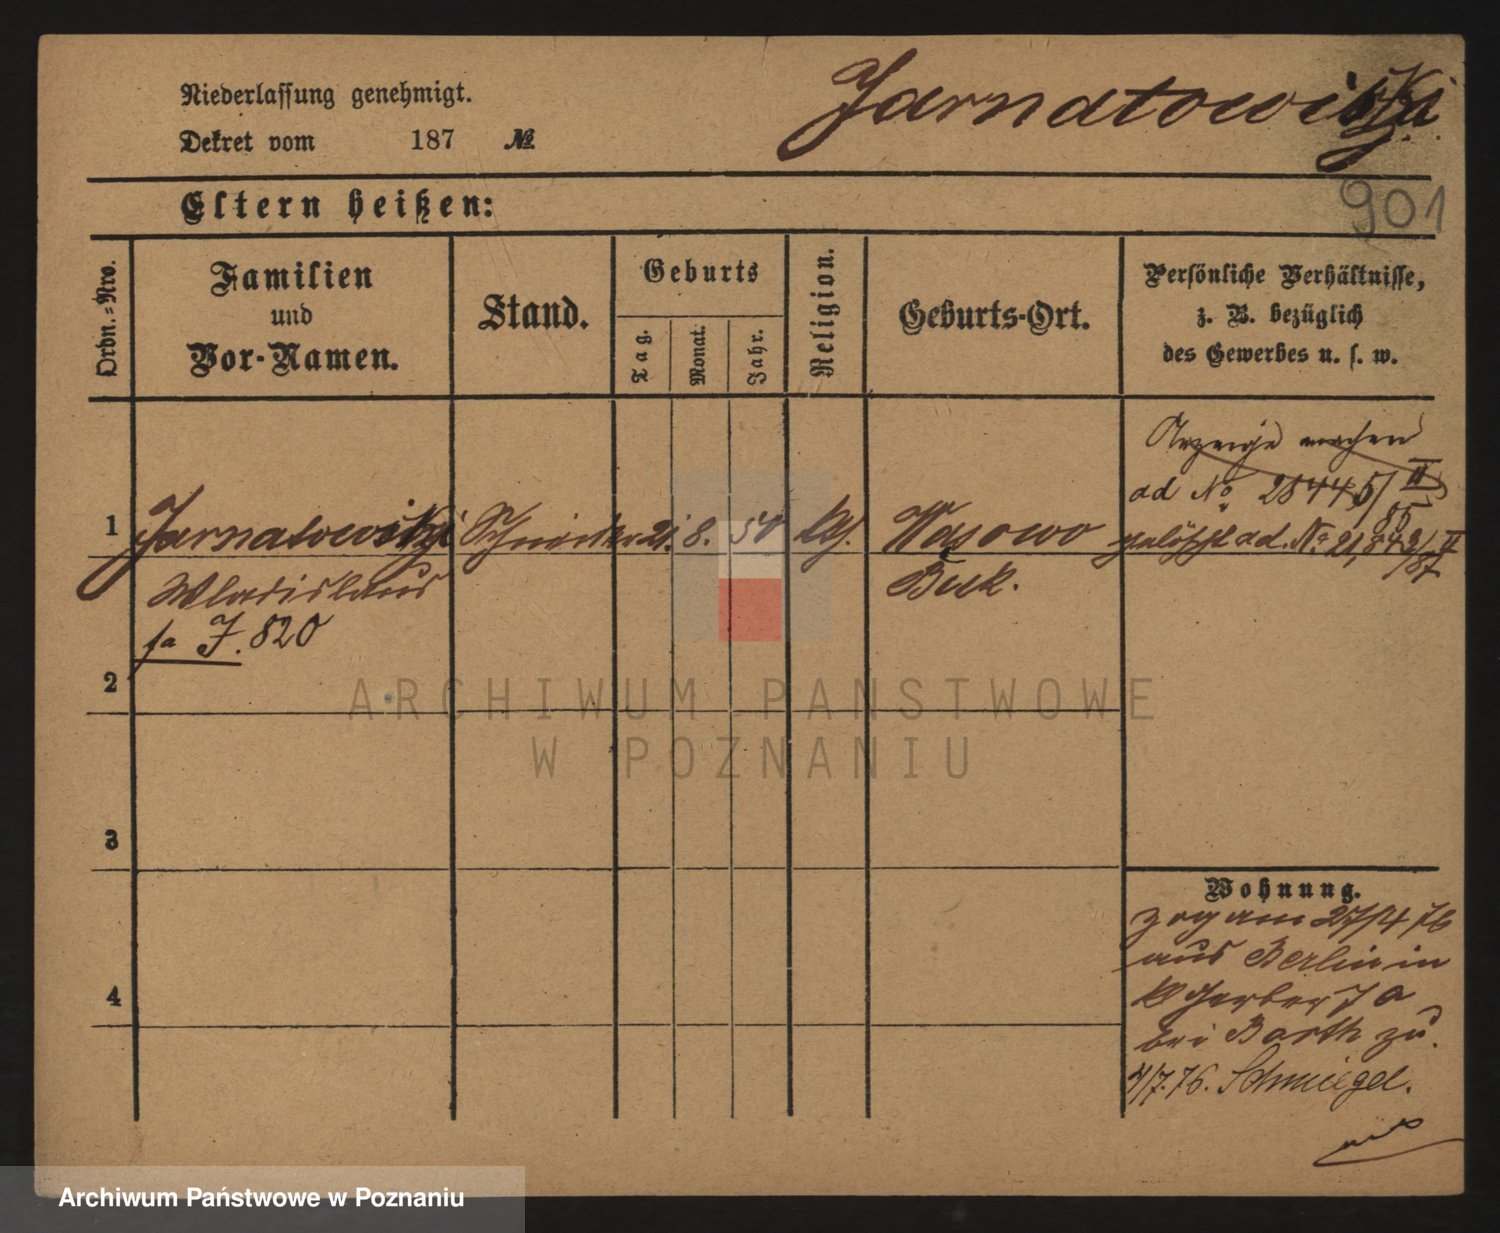 Niederlassung genehmigt.
Dekret vom 187 №
Jarnatowski
901
Eltern heißen:
Ordn.-Nro.
Familien
und
Vor-Namen.
Stand.
Geburts
Tag.
Monat.
Jahr.
Religion.
Geburts-Ort.
Persönliche Verhältnisse,
z. B. bezüglich
des Gewerbes u. s. w.
Anzeige machen
ad No 28445/II
85
1 Jarnatowski Schneider 21. 8. 50 kth. Wasowo gelöscht ad. No 21,843/II
87
Wladislaus Buk.
fa J. 820
2
3
Wohnung.
zog am 27/4 76
aus Berlin in
Gerber 7 a
bei Barth zu.
4
4/7.76. Schmiegel.
ARCHIWUM PANSTWOWE
W POZNANIU
Archiwum Państwowe w Poznaniu